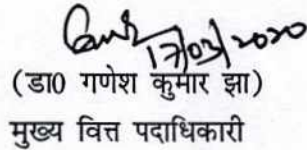 17/03/2020
(डा0 गणेश कुमार झा)
मुख्य वित्त पदाधिकारी